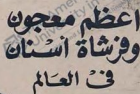 اعظم معجون
وفرشاة أسنان
فى العالم